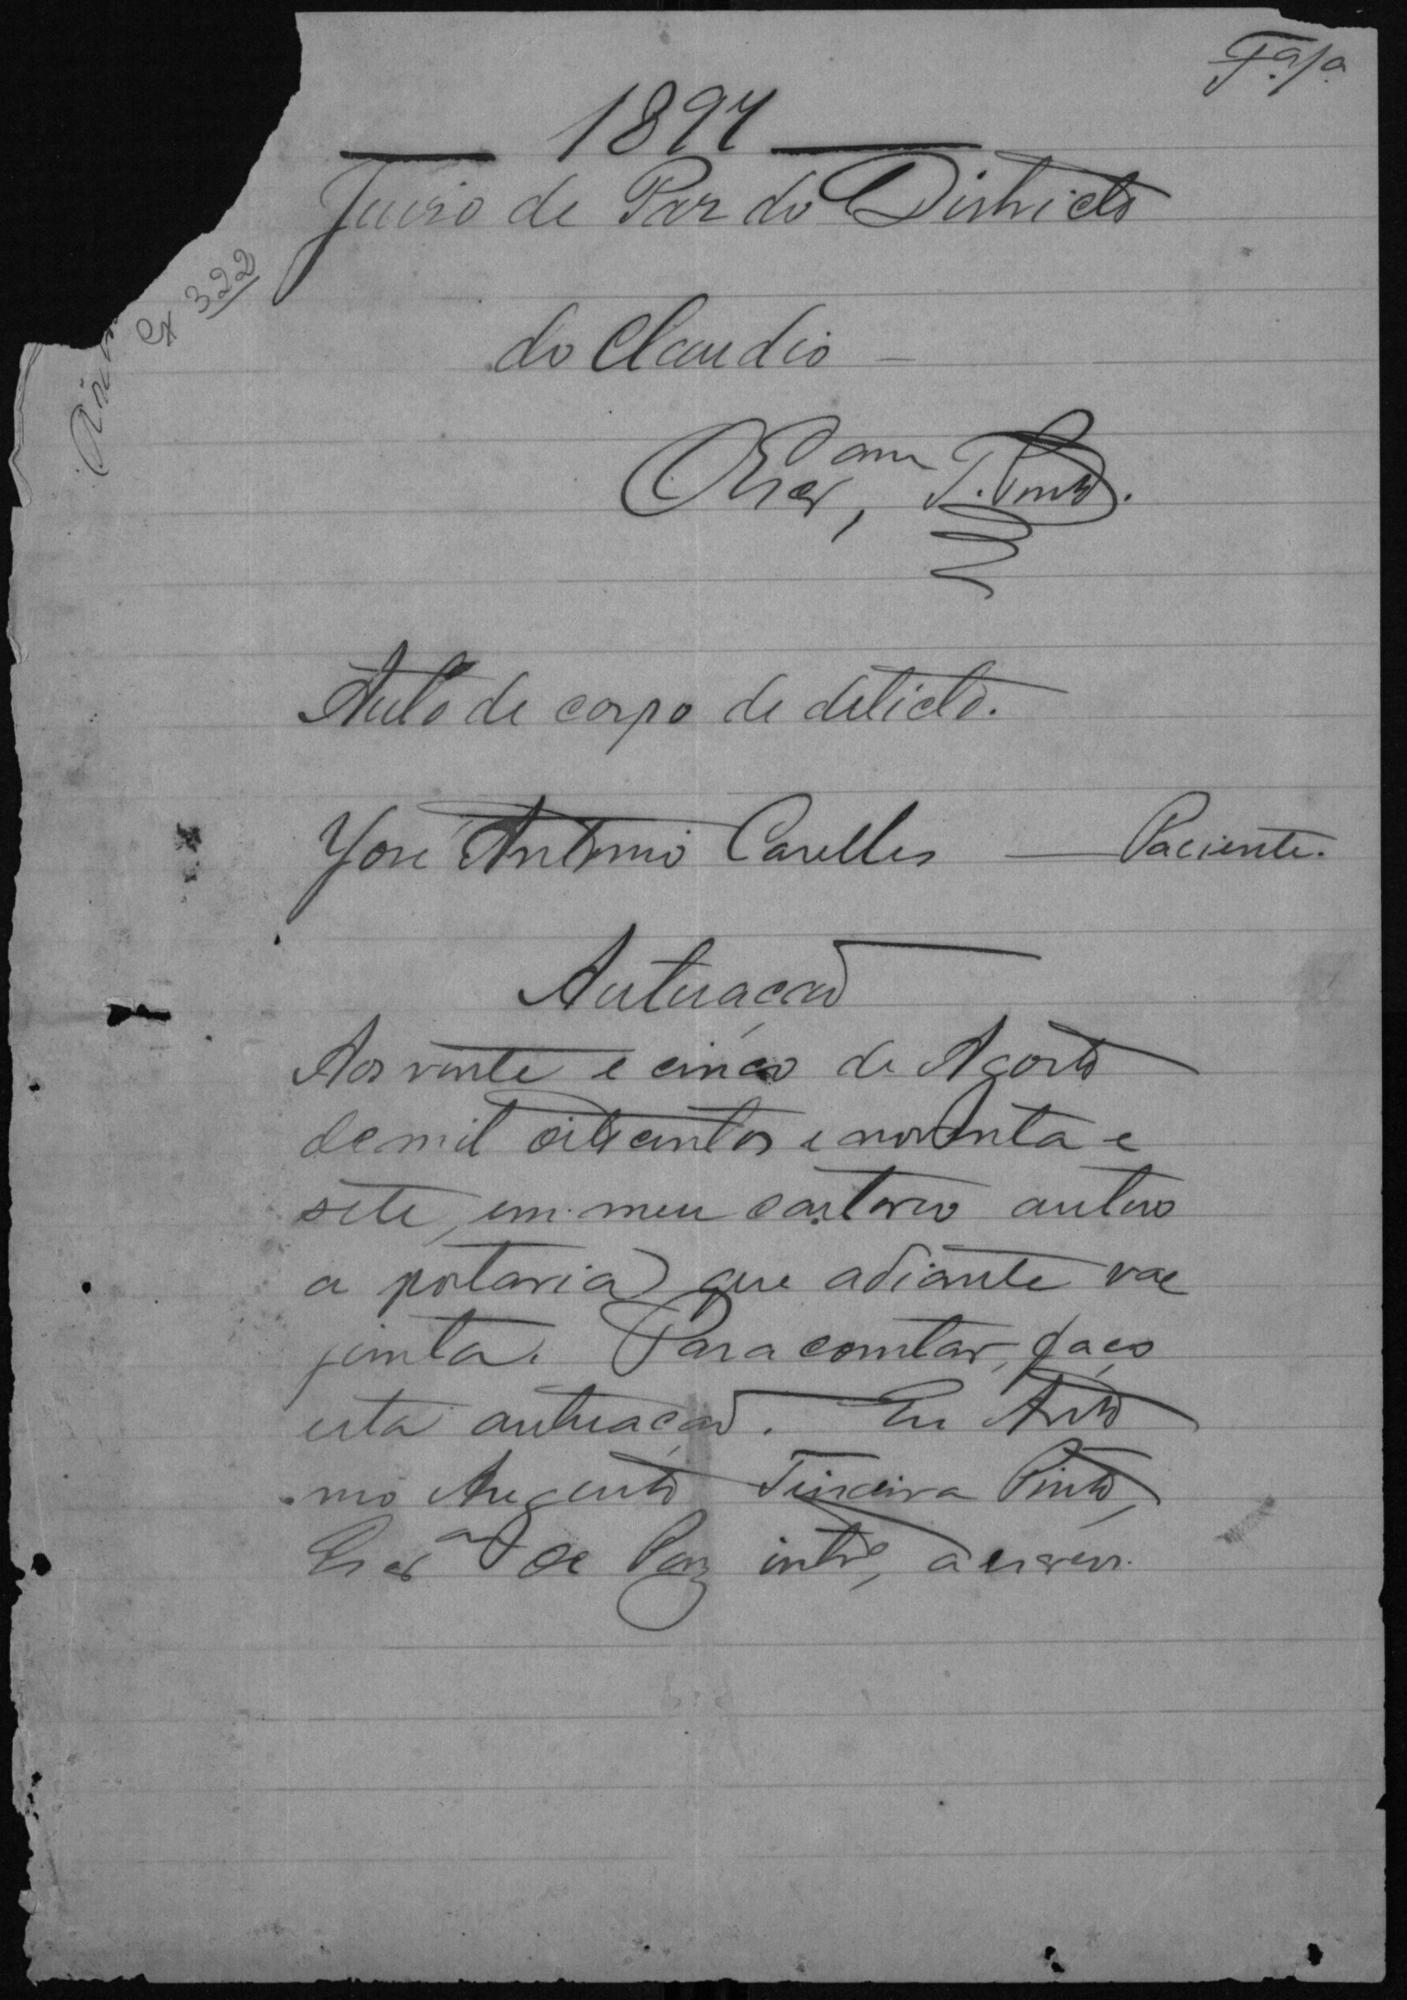 1897
Juiso de Paz do Districto
cx 322
do Claudio
T. Pinto.
Auto de corpo de delicto.
José Antonio Carelles — Paciente.
Autuação
Aos vinte e cinco de Agosto
de mil oitecentos e noventa e
sete, em meu cartorio autuo
a portaria que adiante vae
junta. Para constar, faço
esta autuação. Eu Anto
nio Augusto Teixeira Pinto,
Escram de Paz intro, a escrevi.